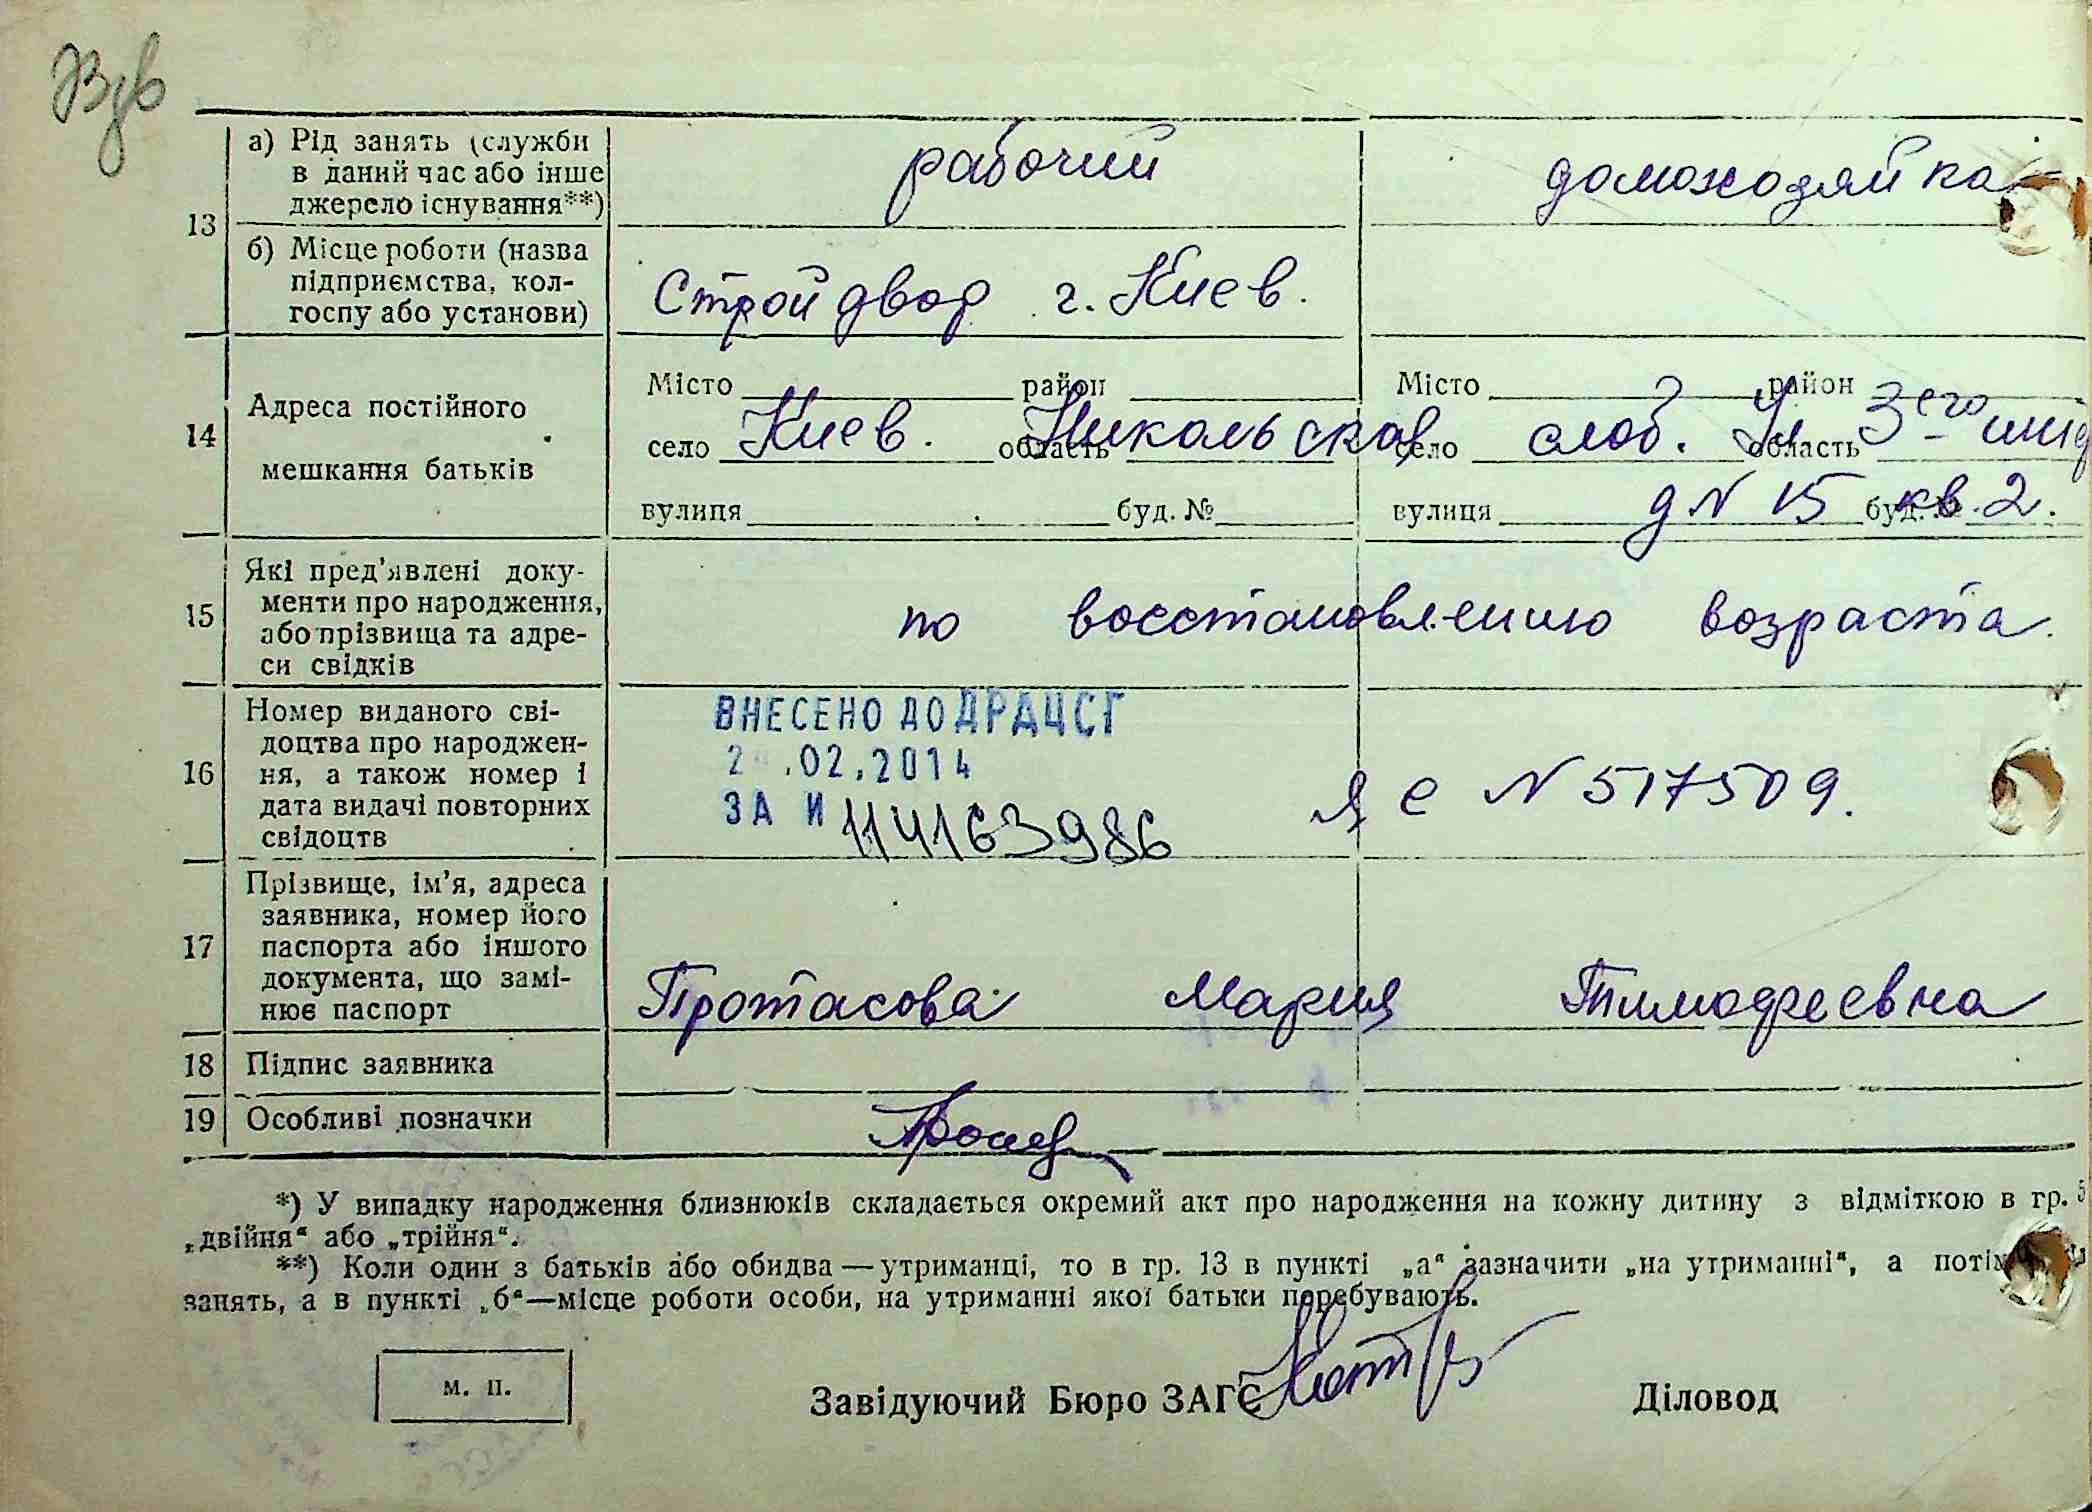 13
а) Рід занять (служби
в даний час або інше
джерело існування**)
рабочий
домохозяйка
б) Місце роботи (назва
підприємства, кол-
госпу або установи)
Стройдвор г. Киев.
14
Адреса постійного
мешкання батьків
Місто район
Місто район
село Киев. область Никольская
село слоб. область Ул 3его инт
вулиця буд. №
вулиця д N 15 буд. № кв. 2.
15
Які пред'явлені доку-
менти про народження,
або прізвища та адре-
си свідків
по восстановлению возраста.
16
Номер виданого сві-
доцтва про народжен-
ня, а також номер і
дата видачі повторних
свідоцтв
ВНЕСЕНО ДО ДРАЦСГ
.02.2014
ЗА И 114163986
N 517509.
17
Прізвище, ім'я, адреса
заявника, номер його
паспорта або іншого
документа, що замі-
нює паспорт
Протасова Мария Тимофеевна
18 Підпис заявника
19 Особливі позначки
*) У випадку народження близнюків складається окремий акт про народження на кожну дитину з відміткою в гр. 5
„двійня“ або „трійня“.
**) Коли один з батьків або обидва—утриманці, то в гр. 13 в пункті „а“ зазначити „на утриманні“, а потім
занять, а в пункті „б“—місце роботи особи, на утриманні якої батьки перебувають.
м. п.
Завідуючий Бюро ЗАГС
Діловод